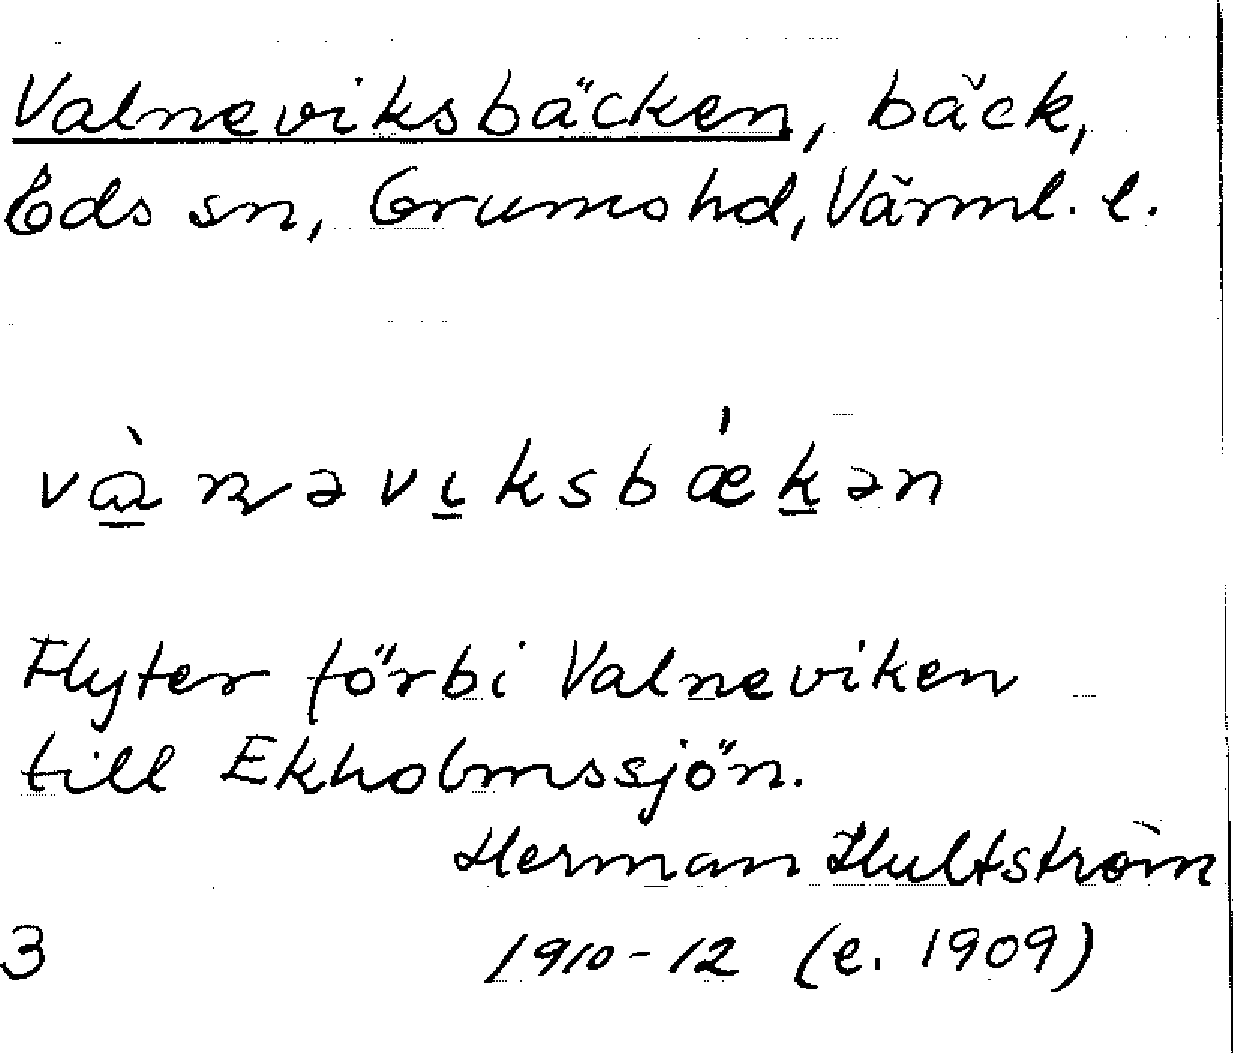 Valneviksbäcken, bäck,
Eds sn, Grums hd, Värml. l.
vàɳəvıksbǽkən
Flyter förbi Valneviken
till Ekholmssjön.
Herman Hultström
3 1910-12 (e. 1909)